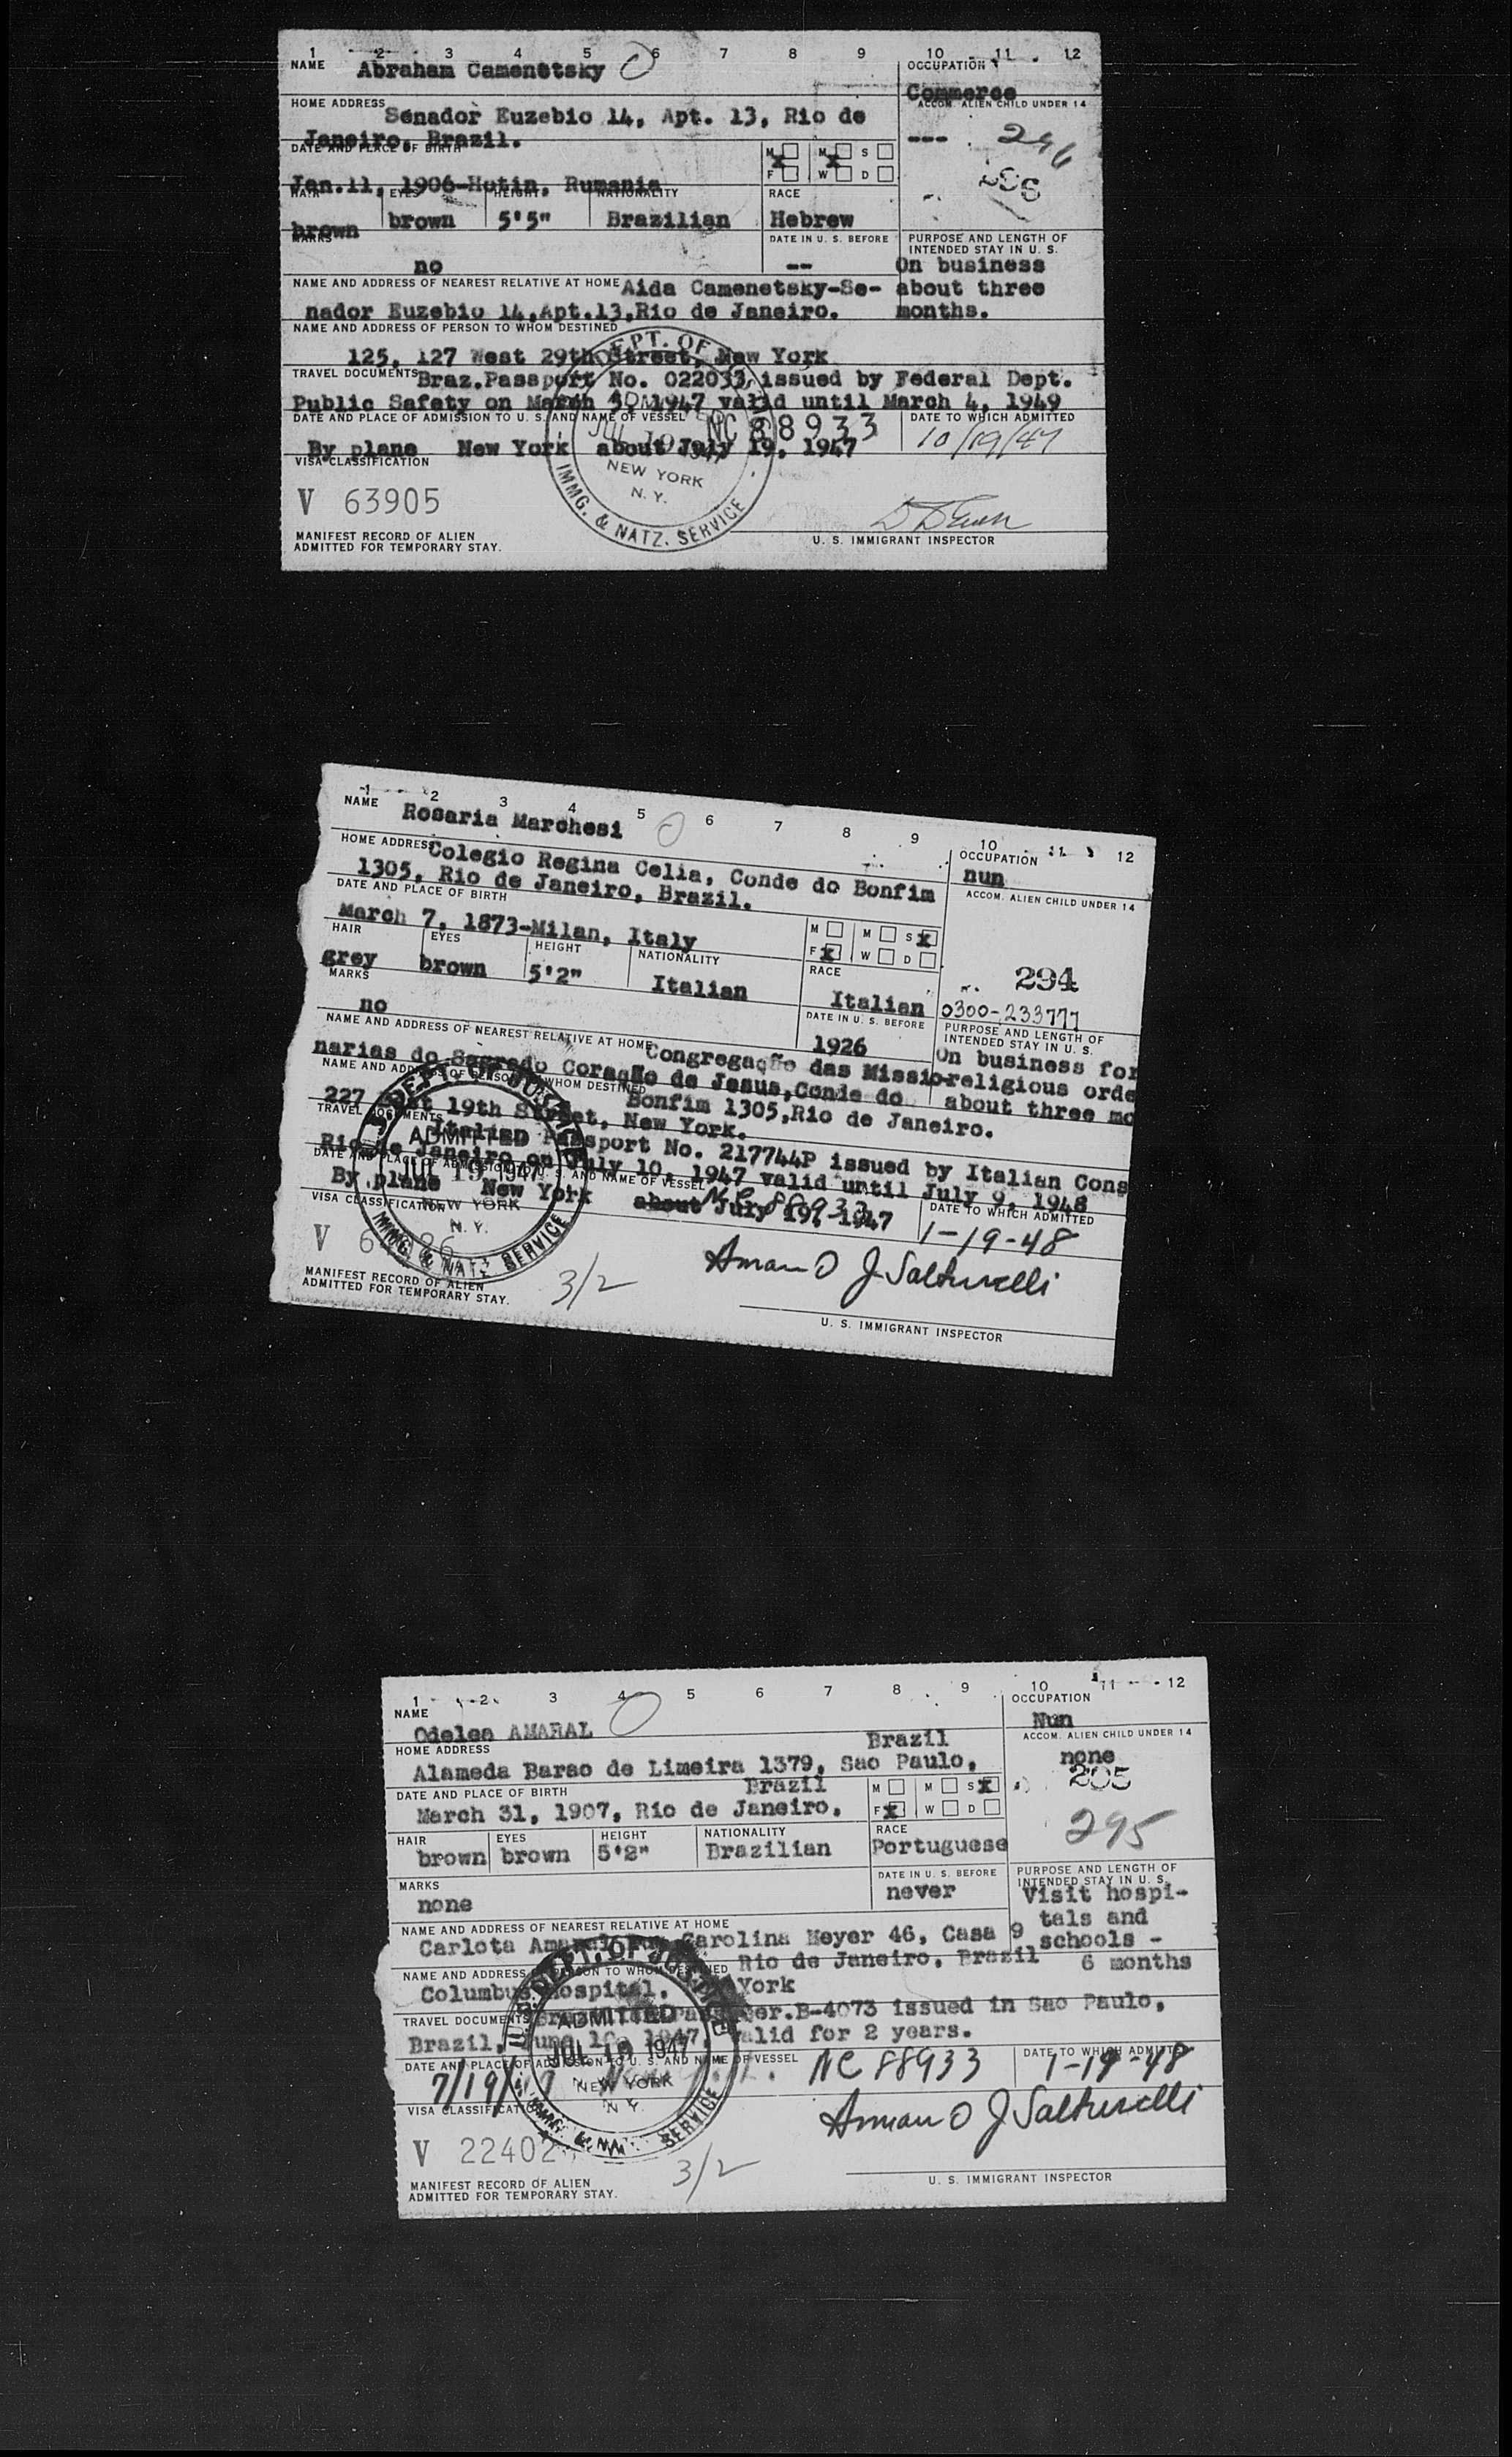 1 2 3 4 5 6 7 8 9 10 11 12
NAME Abraham Camenetsky
OCCUPATION
Commerce
HOME ADDRESS Senador Euzebio 14, Apt. 13, Rio de
Janeiro, Brazil.
ACCOM. ALIEN CHILD UNDER 14
---
246
296
DATE AND PLACE OF BIRTH
Jan.11, 1906-Hotin, Rumania
M M S
F W D
HAIR EYES HEIGHT NATIONALITY RACE
brown brown 5'5" Brazilian Hebrew
MARKS
no
DATE IN U. S. BEFORE
--
PURPOSE AND LENGTH OF
INTENDED STAY IN U. S.
On business
about three
months.
NAME AND ADDRESS OF NEAREST RELATIVE AT HOME Aida Camenetsky-Se-
nador Euzebio 14,Apt.13,Rio de Janeiro.
NAME AND ADDRESS OF PERSON TO WHOM DESTINED
125, 127 West 29th Street, New York
TRAVEL DOCUMENTS Braz.Passport No. 022033, issued by Federal Dept.
Public Safety on March 5, 1947 valid until March 4, 1949
DATE AND PLACE OF ADMISSION TO U. S. AND NAME OF VESSEL NC 88933
DATE TO WHICH ADMITTED
10/19/47
By plane New York about July 19, 1947
VISA CLASSIFICATION
V 63905
DEPT. OF
NEW YORK
N. Y.
IMMG. & NATZ. SERVICE
MANIFEST RECORD OF ALIEN
ADMITTED FOR TEMPORARY STAY.
U. S. IMMIGRANT INSPECTOR
1 2 3 4 5 6 7 8 9 10 11 12
NAME Rosaria Marchesi
OCCUPATION
nun
HOME ADDRESS Colegio Regina Celia, Conde do Bonfim
1305, Rio de Janeiro, Brazil.
ACCOM. ALIEN CHILD UNDER 14
DATE AND PLACE OF BIRTH
March 7, 1873-Milan, Italy
M M S x
F x W D
294
0300-233777
HAIR EYES HEIGHT NATIONALITY RACE
grey brown 5'2" Italian Italian
MARKS
no
DATE IN U. S. BEFORE
1926
PURPOSE AND LENGTH OF
INTENDED STAY IN U. S.
On business for
religious orde
about three mo
NAME AND ADDRESS OF NEAREST RELATIVE AT HOME Congregação das Missio-
narias do Sagrado Coração de Jesus,Conde do
Bonfim 1305,Rio de Janeiro.
NAME AND ADDRESS OF PERSON TO WHOM DESTINED
227 East 19th Street, New York.
TRAVEL DOCUMENTS Italian Passport No. 217744P issued by Italian Cons
Rio de Janeiro on July 10, 1947 valid until July 9, 1948
DATE AND PLACE OF ADMISSION TO U. S. AND NAME OF VESSEL NC 88933
By plane New York about July 19, 1947
DATE TO WHICH ADMITTED
1-19-48
VISA CLASSIFICATION
V
DEPT. OF JUSTICE
ADMITTED
JUL 19 1947
NEW YORK
N. Y.
IMMG. & NATZ. SERVICE
MANIFEST RECORD OF ALIEN
ADMITTED FOR TEMPORARY STAY.
3/2
U. S. IMMIGRANT INSPECTOR
1 2 3 4 5 6 7 8 9 10 11 12
NAME
Odelea AMARAL
OCCUPATION
Nun
HOME ADDRESS Brazil
Alameda Barao de Limeira 1379, Sao Paulo,
ACCOM. ALIEN CHILD UNDER 14
none
295
295
DATE AND PLACE OF BIRTH Brazil
March 31, 1907, Rio de Janeiro,
M M S x
F x W D
HAIR EYES HEIGHT NATIONALITY RACE
brown brown 5'2" Brazilian Portuguese
MARKS
none
DATE IN U. S. BEFORE
never
PURPOSE AND LENGTH OF
INTENDED STAY IN U. S.
Visit hospi-
tals and
schools -
6 months
NAME AND ADDRESS OF NEAREST RELATIVE AT HOME
Carlota Amaral, Carolina Meyer 46, Casa 9
Rio de Janeiro, Brazil
NAME AND ADDRESS OF PERSON TO WHOM DESTINED
Columbus Hospital, York
TRAVEL DOCUMENTS Ser.B-4073 issued in Sao Paulo,
Brazil, June 1947, valid for 2 years.
DATE AND PLACE OF ADMISSION TO U. S. AND NAME OF VESSEL
7/19/47 NC 88933
DATE TO WHICH ADMITTED
1-19-48
VISA CLASSIFICATION
V 22402
DEPT. OF JUSTICE
ADMITTED
JUL 19 1947
NEW YORK
N. Y.
SERVICE
MANIFEST RECORD OF ALIEN
ADMITTED FOR TEMPORARY STAY.
3/2
U. S. IMMIGRANT INSPECTOR